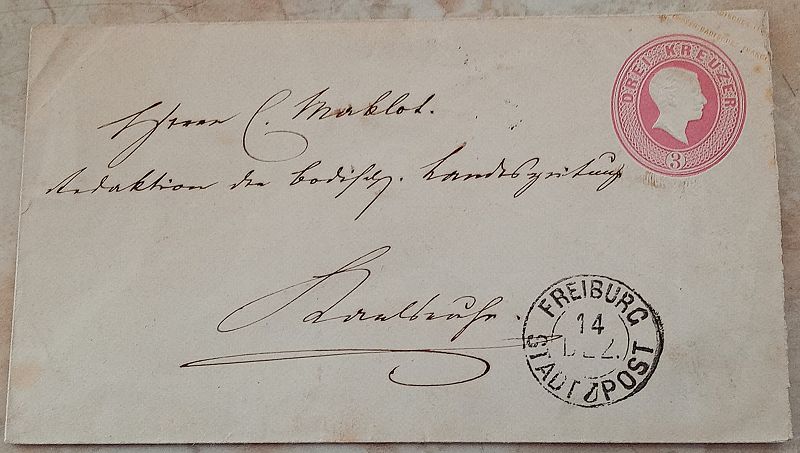 DREI KREUZER
3
Herrn C. Maklot.
Redaktion der badisch. Landeszeitung
Karlsruhe.
FREIBURG
14
DEZ.
STADTPOST